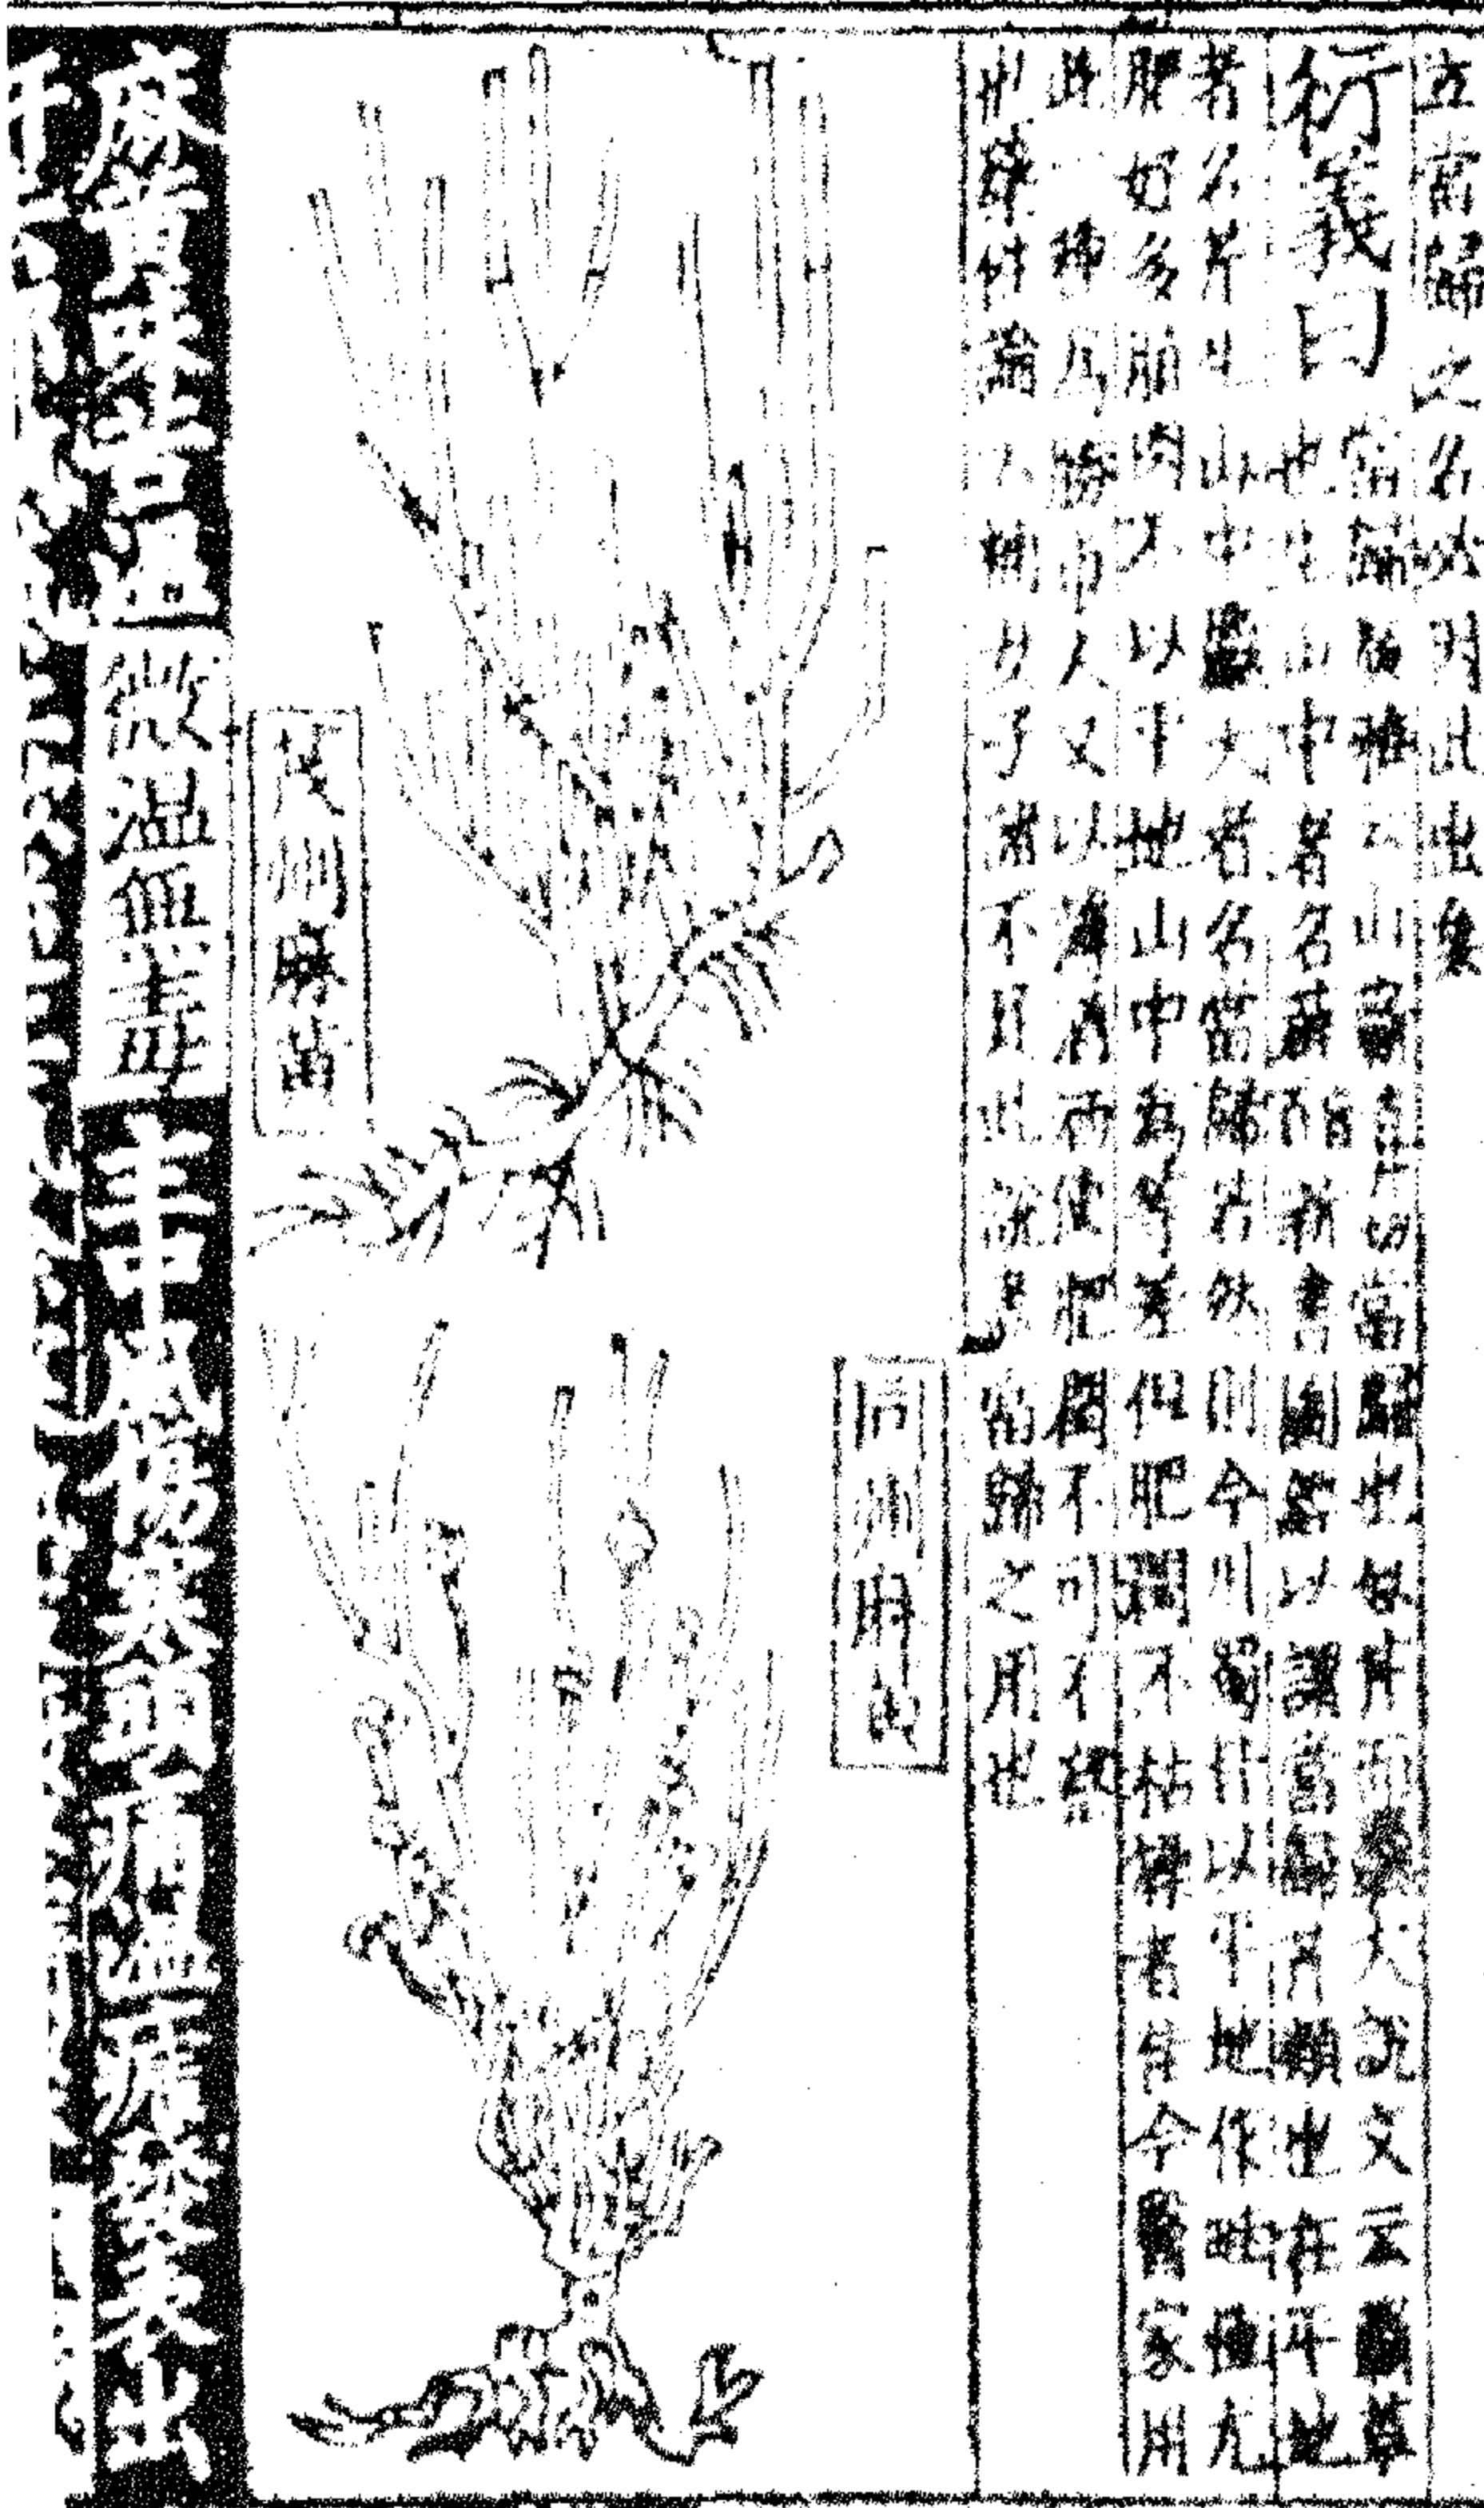 立當歸之名以明此也
衍義曰
當歸廣雅云山蘄古芹切當歸也似芹而麤大說文云蘄草
也生山中者名薜音百新書圖經以謂當歸芹類也在平地
者名芹生山中麤大者名當歸若然則今川蜀皆以平地作畦種尤
肥好多脂肉不以平地山中為等差但肥潤不枯燥者佳今醫家用
此一種為勝市人又以薄酒洒使肥潤不可不察
也藥性論云補女子諸不足此說盡當歸之用也
同州麻黃
茂州麻黃
麻黃味苦溫微溫無毒主中風傷寒頭痛溫瘧發表出